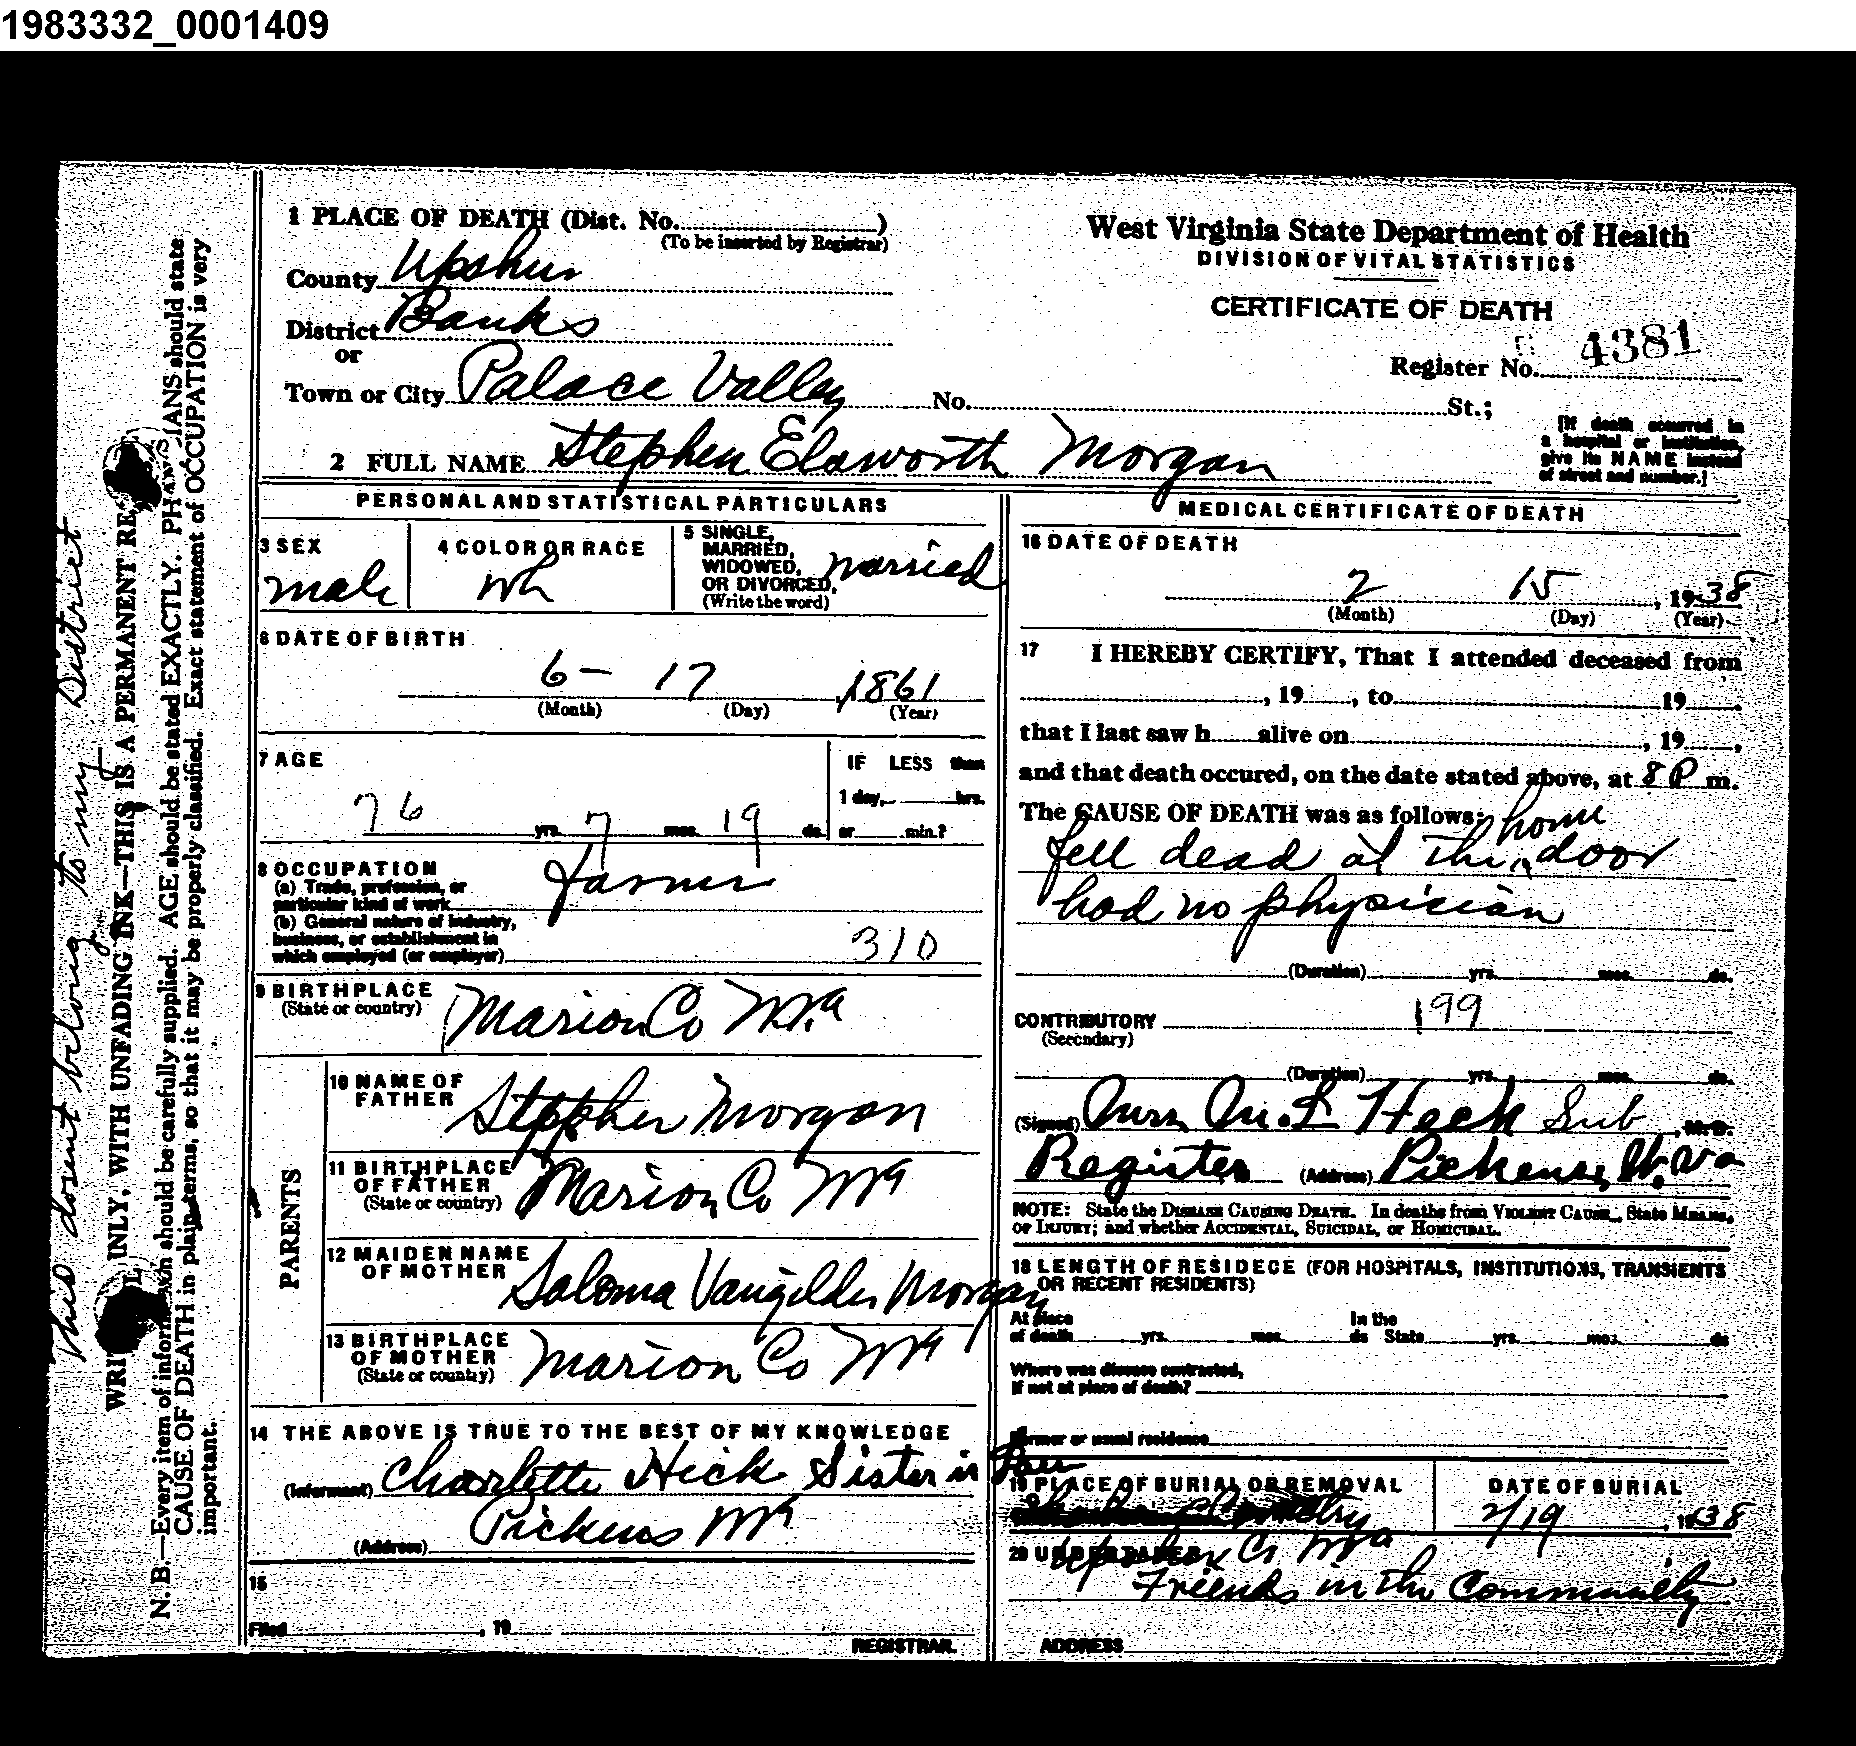 1983332_0001409
1 PLACE OF DEATH (Dist. No. )
(To be inserted by Registrar)
County Upshur
District Banks
or
Town or City Palace Valley No. St.;
West Virginia State Department of Health
DIVISION OF VITAL STATISTICS
CERTIFICATE OF DEATH
Register No. 4381
[If death occurred in
a hospital or institution,
give its NAME instead
of street and number.]
2 FULL NAME Stephen Elsworth Morgan
PERSONAL AND STATISTICAL PARTICULARS
3 SEX
male
4 COLOR OR RACE
wh
5 SINGLE,
MARRIED,
WIDOWED,
OR DIVORCED,
(Write the word)
married
6 DATE OF BIRTH
6 - 17 1861
(Month) (Day) (Year)
7 AGE
76 yrs. 7 mos. 19 ds.
IF LESS than
1 day, hrs.
or min.?
8 OCCUPATION
(a) Trade, profession, or
particular kind of work
Farmer
(b) General nature of industry,
business, or establishment in
which employed (or employer)
310
9 BIRTHPLACE
(State or country)
Marion Co W.Va
PARENTS
10 NAME OF
FATHER
Stepher Morgan
11 BIRTHPLACE
OF FATHER
(State or country)
Marion Co WVa
12 MAIDEN NAME
OF MOTHER
Saloma Vangilder Morgan
13 BIRTHPLACE
OF MOTHER
(State or country)
Marion Co WVa
14 THE ABOVE IS TRUE TO THE BEST OF MY KNOWLEDGE
(Informant) Charlotte Hick Sister in Law
(Address) Pickens WVa
15
Filed , 19
REGISTRAR.
MEDICAL CERTIFICATE OF DEATH
16 DATE OF DEATH
2 15 , 1938
(Month) (Day) (Year)
17 I HEREBY CERTIFY, That I attended deceased from
, 19 , to 19 .
that I last saw h alive on , 19 ,
and that death occured, on the date stated above, at 8 P m.
The CAUSE OF DEATH was as follows:
home
fell dead at the door
had no physician
(Duration) yrs. mos. ds.
CONTRIBUTORY 199
(Secondary)
(Duration) yrs. mos. ds.
(Signed) Mrs M. L Heck Sub , M.D.
Register (Address) Pickens, W.Va
NOTE: State the DISEASE CAUSING DEATH. In deaths from VIOLENT CAUSE, State MEANS,
OF INJURY; and whether ACCIDENTAL, SUICIDAL, or HOMICIDAL.
18 LENGTH OF RESIDECE (FOR HOSPITALS, INSTITUTIONS, TRANSIENTS
OR RECENT RESIDENTS)
At place
of death yrs. mos. ds
In the
State yrs. mos. ds
Where was disease contracted,
if not at place of death?
Former or usual residence
19 PLACE OF BURIAL OR REMOVAL
DATE OF BURIAL
2/19 , 1938
20 UNDERTAKER
Upshur Co WVa
Friends in the Community
ADDRESS
This dosent belong to my District
WRITE PLAINLY, WITH UNFADING INK—THIS IS A PERMANENT RE
N. B.—Every item of information should be carefully supplied. AGE should be stated EXACTLY. PHYSICIANS should state
CAUSE OF DEATH in plain terms, so that it may be properly classified. Exact statement of OCCUPATION is very
important.